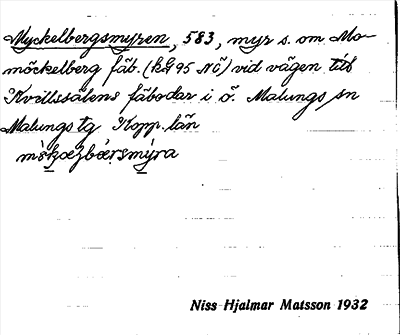 Myckelbergsmyren, 583, myr s. om Mo-
möckelberg fäb. (kG 95 NÖ) vid vägen till
Kvillssälens fäbodar i ö. Malungs sn
Malungs tg Kopp. län
Niss Hjalmar Matsson 1932